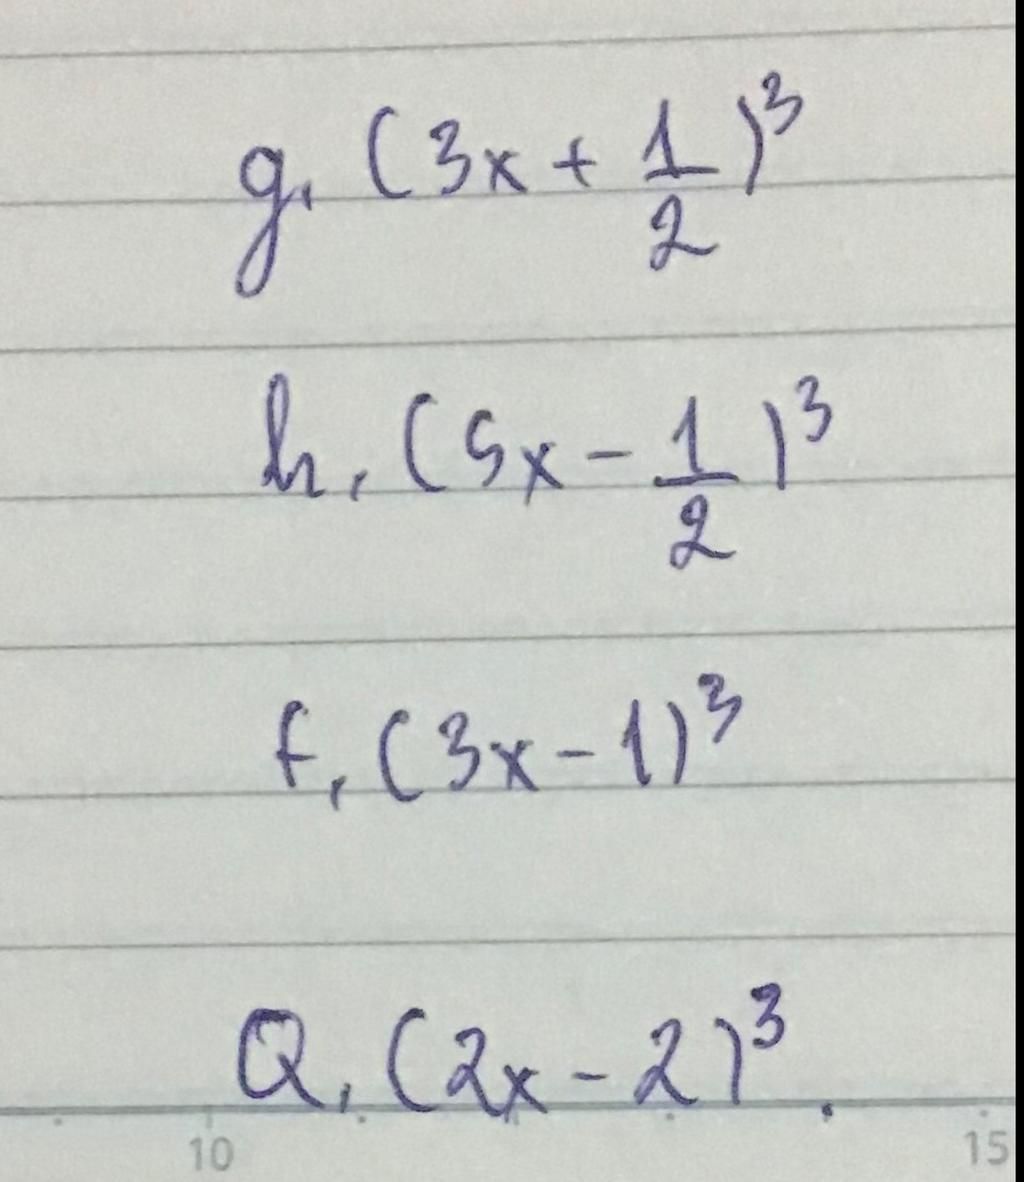 g, (3x + 1/2)³
h, (5x - 1/2)³
f, (3x - 1)³
Q, (2x - 2)³.
10 15